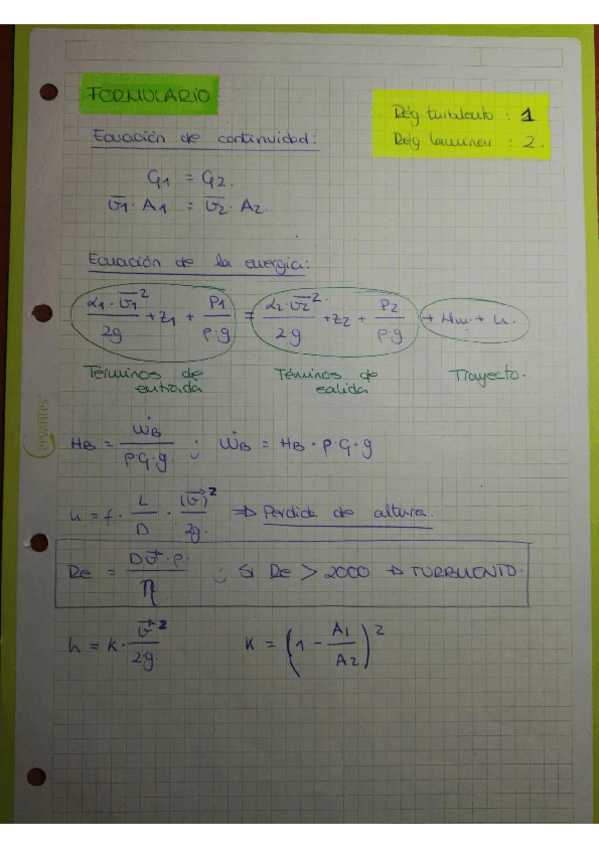 FORMULARIO
Rég turbulento : 1
Rég laminar : 2.
Ecuación de continuidad:
G1 = G2.
v̅1 · A1 = v̅2 · A2
Ecuación de la energia:
α1 · v̅1² / 2g + z1 + P1 / ρ·g = α2 · v̅2² / 2g + z2 + P2 / ρg + Hw + h.
Términos de entrada
Términos de salida
Trayecto.
HB = ẆB / ρ·G·g ; ẆB = HB · ρ · G · g
h = f · L / D · (v⃗)² / 2g ⇒ Perdida de altura.
Re = D v⃗ · ρ / η ; Si Re > 2000 ⇒ TURBULENTO.
h = k · v⃗² / 2g. K = (1 - A1 / A2)²
Cervantes